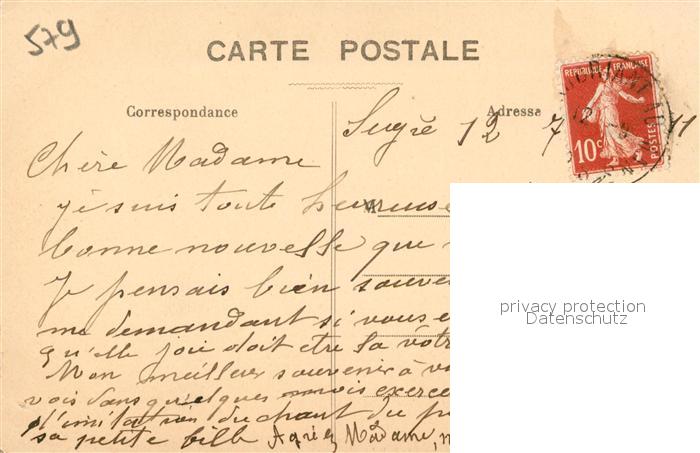 579
CARTE POSTALE
Correspondance
Adresse
REPUBLIQUE FRANÇAISE
10c
POSTES
12 7 11
Chère Madame
je suis toute heureuse
bonne nouvelle que
Je pensais bien
me demandant si vous
qu'elle joie doit être la
Mon meilleur souvenir à
vois dans quelques mois
l'imitation du chant du
sa petite fille Agréez Madame,
privacy protection
Datenschutz